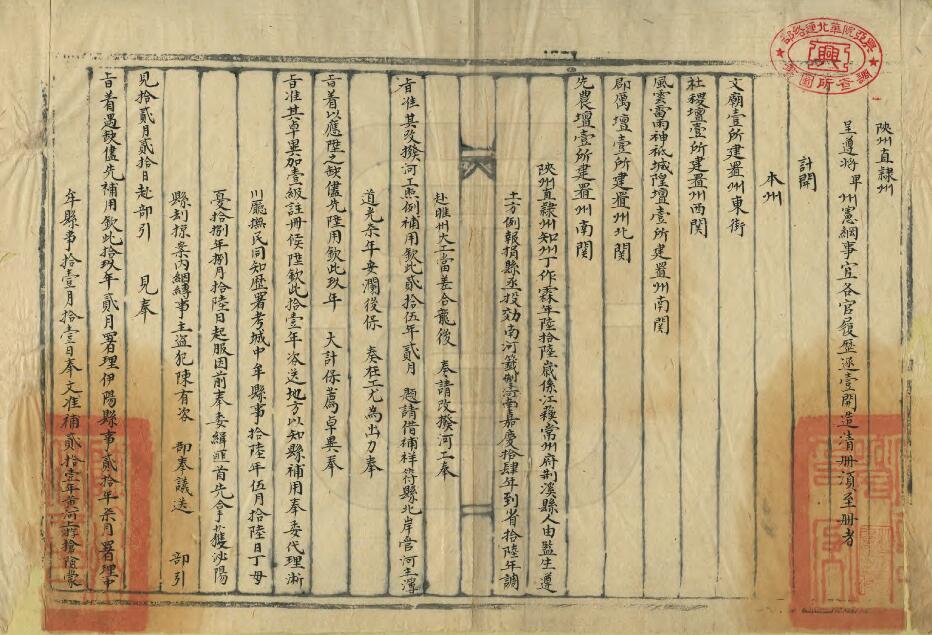 陝州直隸州
呈遵將卑州憲綱事宜各官履歷逐壹開造清冊湏至冊者
計開
本州
文廟壹所建置州東街
社稷壇壹所建置州西関
風雲雷雨神祇城隍壇壹所建置州南関
郡厲壇壹所建置州北関
先農壇壹所建置州南関
陝州直隸州知州丁作霖年陸拾陸歲係江蘇常州府荆溪縣人由監生遵
土方例報捐縣丞投効南河籤掣河南嘉慶拾肆年到省拾陸年調
赴睢州大工當差合龍後 奏請改撥河工奉
旨准其改撥河工照例補用欽此貳拾伍年貳月 題請借補祥符縣北岸管河主簿
道光柒年安瀾後保 奏在工尤為出力奉
旨着以應陞之缺儘先陞用欽此玖年 大計保薦卓異奉
旨准其卓異加壹級註冊候陞欽此拾壹年咨送地方以知縣補用奉委代理淅
川廳撫民同知歷署考城中牟縣事拾陸年伍月拾陸日丁母
憂拾捌年捌月拾陸日起服因前奉委緝匪首先拿獲泌陽
縣刦掠案內綑縳事主盜犯陳有咨 部奉議送 部引
見拾貳月貳拾日赴部引 見奉
旨着遇缺儘先補用欽此拾玖年貳月署理伊陽縣事貳拾年柒月署理中
牟縣事拾壹月拾壹日奉文准補貳拾壹年黃河上游搶險蒙
興亞院華北連絡部
調查所圖書